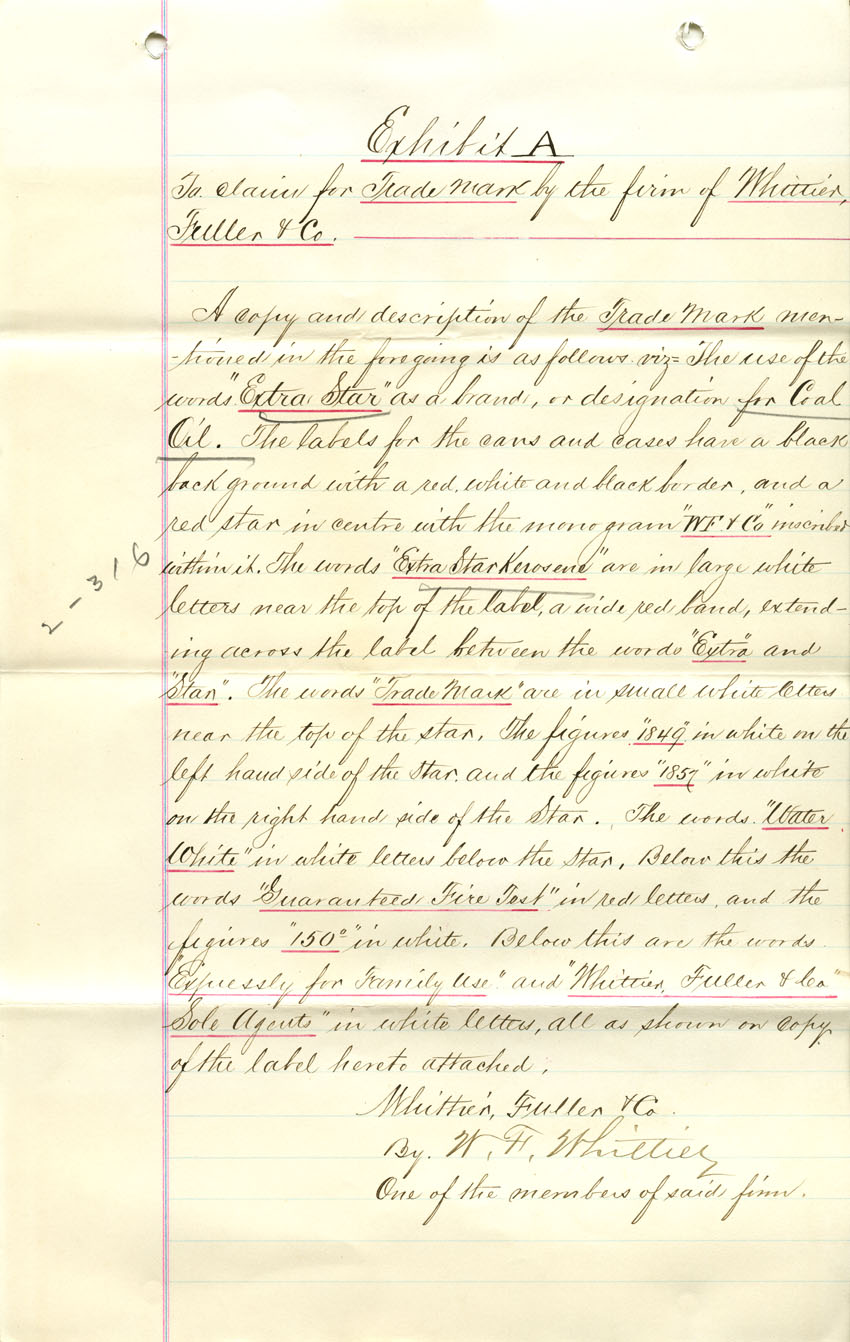 Exhibit A
To claim for Trade Mark by the firm of Whittier,
Fuller & Co.
A copy and description of the Trade Mark men-
-tioned in the foregoing is as follows viz= The use of the
words "Extra Star" as a brand, or designation for Coal
Oil. The labels for the cans and cases have a black
back ground with a red, white and black border, and a
red star in centre with the monogram "WF & Co" inscribed
within it. The words "Extra Star Kerosene" are in large white
letters near the top of the label, a wide red band, extend-
-ing across the label between the words "Extra" and
"Star". The words "Trade Mark" are in small white letters
near the top of the star. The figures "1849" in white on the
left hand side of the Star and the figures "1857" in white
on the right hand side of the Star. The words "Water
White" in white letters below the Star. Below this the
words "Guaranteed Fire Test" in red letters, and the
figures "150°" in white. Below this are the words
"Expressly for Family Use" and "Whittier, Fuller & Co"
Sole Agents" in white letters, all as shown on copy
of the label hereto attached.
Whittier, Fuller & Co.
By. W. F. Whittier
One of the members of said firm.
2-316